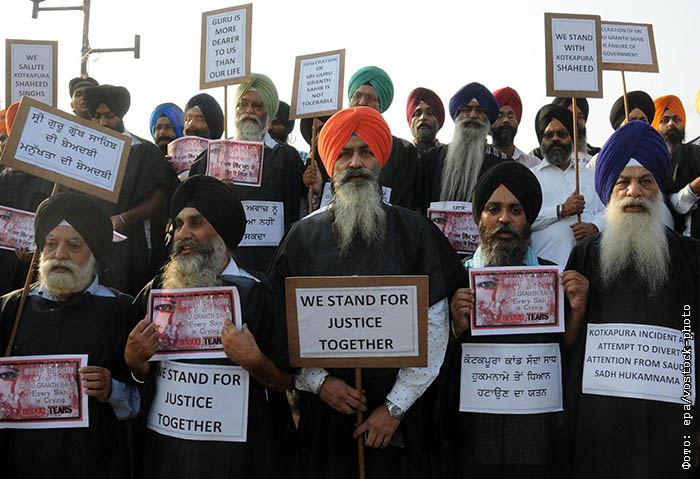 WE
SALUTE
KOTKAPURA
SHAHEED
SINGHS
GURU IS
MORE
DEARER
TO US
THAN
OUR LIFE
DESECRATION OF
SRI GURU
GRANTH SAHIB
IS NOT
TOLERABLE
WE STAND
WITH
KOTKAPURA
SHAHEED
DESECRATION OF SRI
GURU GRANTH SAHIB
IS FAILURE OF
GOVERNMENT
ਸ੍ਰੀ ਗੁਰੂ ਗ੍ਰੰਥ ਸਾਹਿਬ
ਦੀ ਬੇਅਦਬੀ
ਮਨੁੱਖਤਾ ਦੀ ਬੇਅਦਬੀ
WE STAND FOR
JUSTICE
TOGETHER
GURU GRANTH SAHIB
is Crying
81,000 TEARS
Every Sikh
is Crying
TEARS
WE STAND FOR
JUSTICE
TOGETHER
GURU GRANTH SAHIB
Every Sikh
is Crying
81,000 TEARS
ਕੋਟਕਪੂਰਾ ਕਾਂਡ ਸੌਦਾ ਸਾਧ
ਹੁਕਮਨਾਮੇ ਤੋਂ ਧਿਆਨ
ਹਟਾਉਣ ਦਾ ਯਤਨ
KOTKAPURA INCIDENT
ATTEMPT TO DIVERT
ATTENTION FROM
SADH HUKAMNAMA
Фото: epa/vostock-photo